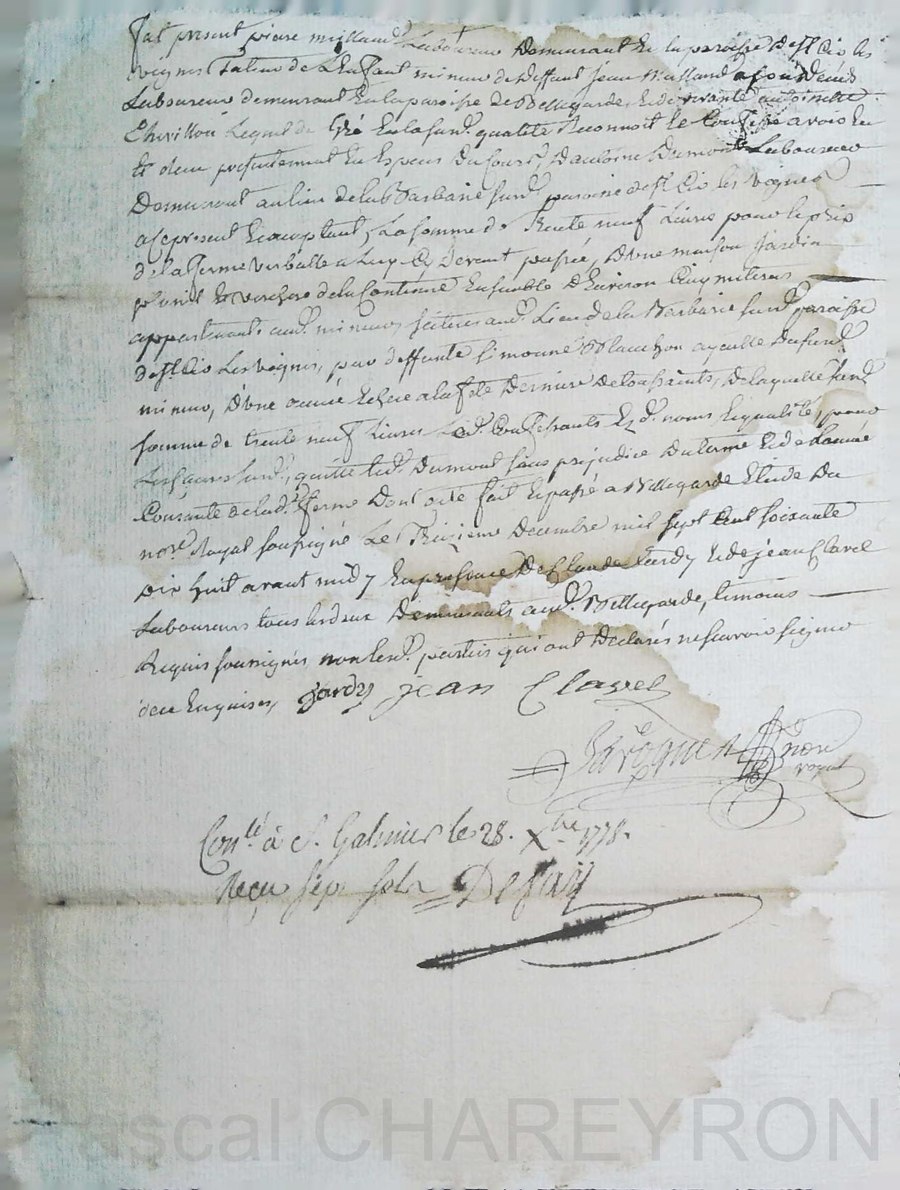 fut present piere millaud Laboureur Demeurant en la paroisse de st Cir les
vignes Tuteur de L'enfant mineur de deffunt jean
Laboureur demeurant en la paroisse de Bellegarde, et de vivante antoinette
Lequel de Gré en lad. qualité Reconnoit et Confesse avoir eu
et Receu presentement en Especes du Cours D'antoine Dumont Laboureur
Demeurant au lieu de la Barbarie surd. paroisse de st Cir les vignes
a ce present acceptant, La somme de trente neuf Livres pour le prix
de la ferme verballe a Luy Cy devant passée, D'une maison jardin
et verchere de la Contenue Ensemble D'Environ Cinq
appartenants aud. mineur scitués aud. Lieu de la Barbarie surd. paroisse
de st. Cir Les vignes, par deffunte simonne ayeulle dud.
mineur, d'une année Echue a la fete Derniere de toussaints, de laquelle
somme de trente neuf Livres Led. Confessant Esd. noms Et qualité, pour
quitte led. Dumont sans prejudice du terme et de L'année
Courante de lad. ferme Dont acte fait et passé a Bellegarde Etude du
nore. Royal soussigné Le treizieme Decembre mil sept Cent soixante
Dix huit avant midy En presence De Claude jardy et de jean Clavel
Laboureurs tous les deux Demeurants aud. Bellegarde, temoins
Requis soussignés non led. parties qui ont Declarés ne scavoir signer
de ce Enquises,
jardy jean Clavel
nore
royal
Conlé à St. Galmier le 28. Xbre 1778.
Reçu sept sols
Pascal CHAREYRON